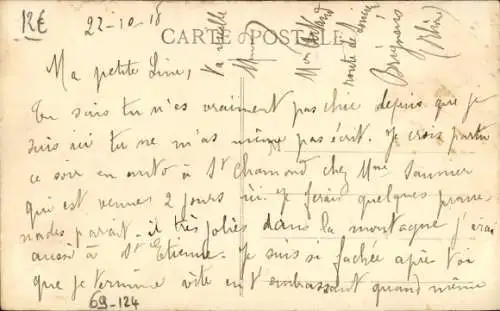 12€
22-10-18
CARTE POSTALE
Ma petite Line,
Tu sais tu n'es vraiment pas chic depuis que je
suis ici tu ne m'as même pas écrit. Je crois partir
ce soir en auto à St Chamond chez Mme Saunier
qui est venue 2 jours ici. Je ferais quelques prome
nades parait-il très jolies dans la montagne j'irai
aussi à St Etienne. Je suis si fachée après toi
que je termine vite en t'embrassant quand même
69-124
Ta vieille
Route de
Brignais
(Rhône)